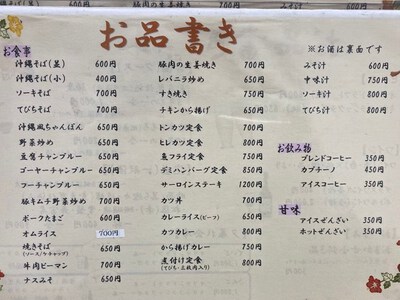 お品書き
※お酒は裏面です
お食事
沖縄そば(並) 600円
沖縄そば(小) 400円
ソーキそば 700円
てびちそば 700円
沖縄風ちゃんぽん 650円
野菜炒め 650円
豆腐チャンプルー 650円
ゴーヤーチャンプルー 650円
フーチャンプルー 650円
豚キムチ野菜炒め 700円
ポークたまご 600円
オムライス 700円
焼きそば 650円
(ソース/ケチャップ)
牛肉ピーマン 700円
ナスみそ 650円
豚肉の生姜焼き 700円
レバニラ炒め 650円
すき焼き 750円
チキンから揚げ 650円
トンカツ定食 700円
ヒレカツ定食 800円
魚フライ定食 750円
デミハンバーグ定食 850円
サーロインステーキ 1200円
カツ丼 700円
カレーライス(ビーフ) 650円
カツカレー 800円
から揚げカレー 750円
煮付け定食 800円
(てびち・三枚肉入り)
みそ汁 600円
中味汁 750円
ソーキ汁 800円
てびち汁 800円
お飲み物
ブレンドコーヒー 350円
カプチーノ 450円
アイスコーヒー 350円
甘味
アイスぜんざい 350円
ホットぜんざい 350円